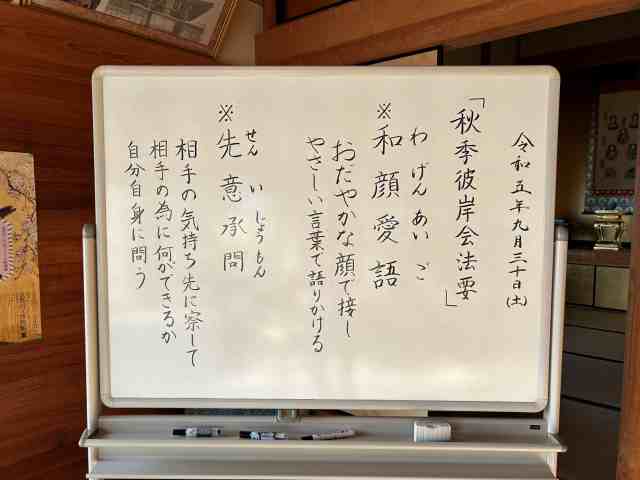 令和五年九月三十日(土)
「秋季彼岸会法要」
わげんあいご
※和顔愛語
おだやかな顔で接し
やさしい言葉で語りかける
せんいしょうもん
※先意承問
相手の気持ち先に察して
相手の為に何ができるか
自分自身に問う